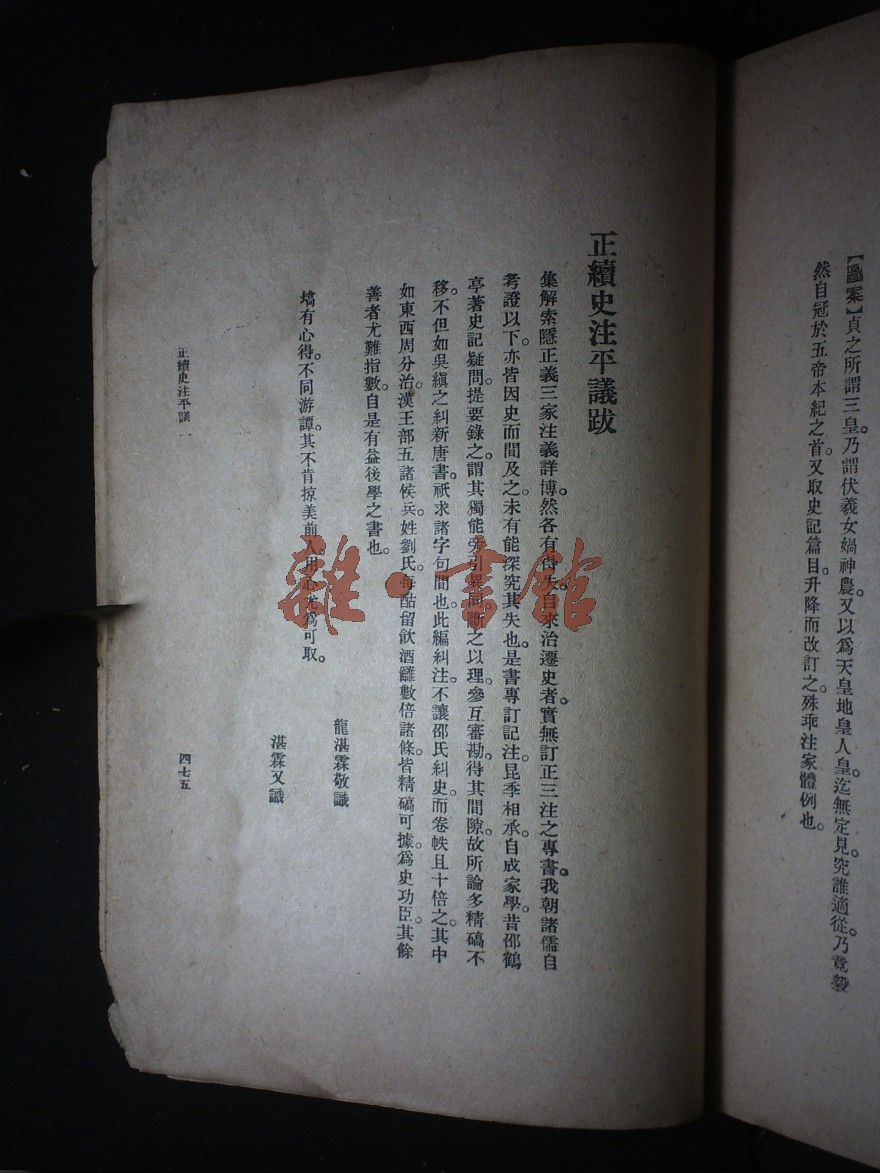 【圖案】貞之所謂三皇。乃謂伏羲女媧神農。又以爲天皇地皇人皇。迄無定見。究誰適從。乃竟毅
然自冠於五帝本紀之首。又取史記篇目升降而改訂之。殊乖注家體例也。
正續史注平議跋
集解索隱正義三家注義詳博。然各有得失。自來治遷史者。實無訂正三注之專書。我朝諸儒自
考證以下。亦皆因史而間及之。未有能深究其失也。是書專訂記注。昆季相承。自成家學。昔邵鶴
亭著史記疑問。提要錄之。謂其獨能旁引異同。斷之以理。參互審勘。得其間隙。故所論多精碻不
移。不但如吳縝之糾新唐書。祇求諸字句間也。此編糾注。不讓邵氏糾史。而卷帙且十倍之。其中
如東西周分治。漢王部五諸侯兵。姓劉氏。每酤留飲酒讎數倍諸條。皆精碻可據。爲史功臣。其餘
善者尤難指數。自是有益後學之書也。
龍湛霖敬識
塙有心得。不同游譚。其不肯掠美前人。用心尤爲可取。
湛霖又識
正續史注平議 一
四七五
雜·書館